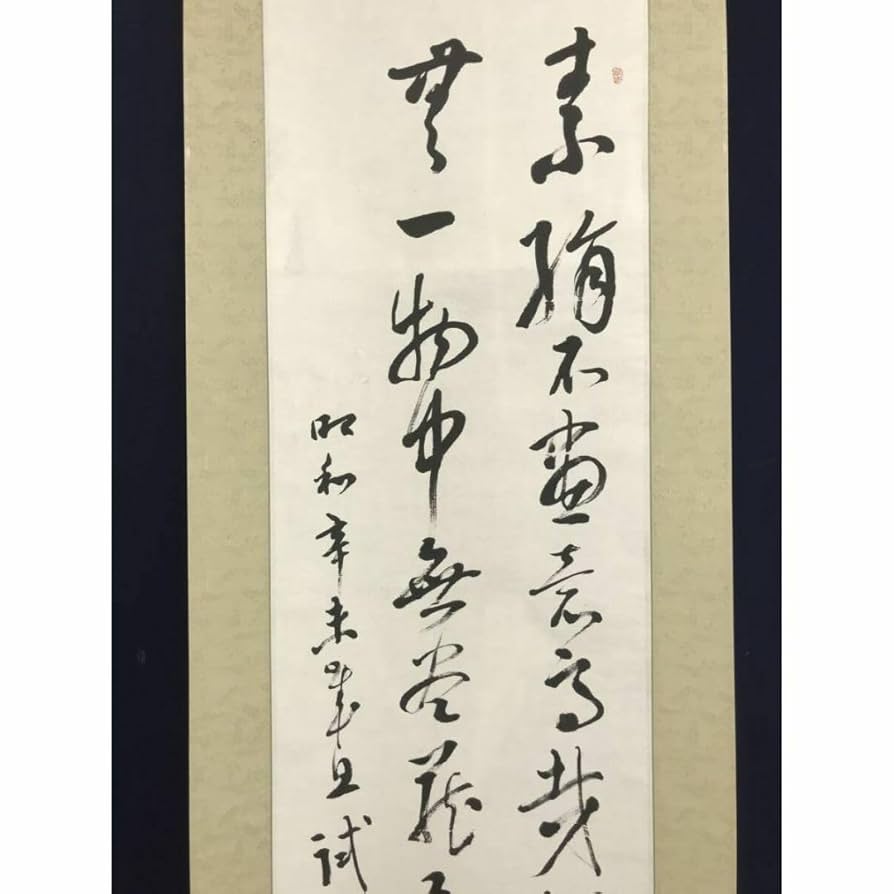 素絹不畫意高哉
無一物中無尽蔵
昭和辛未歳旦試